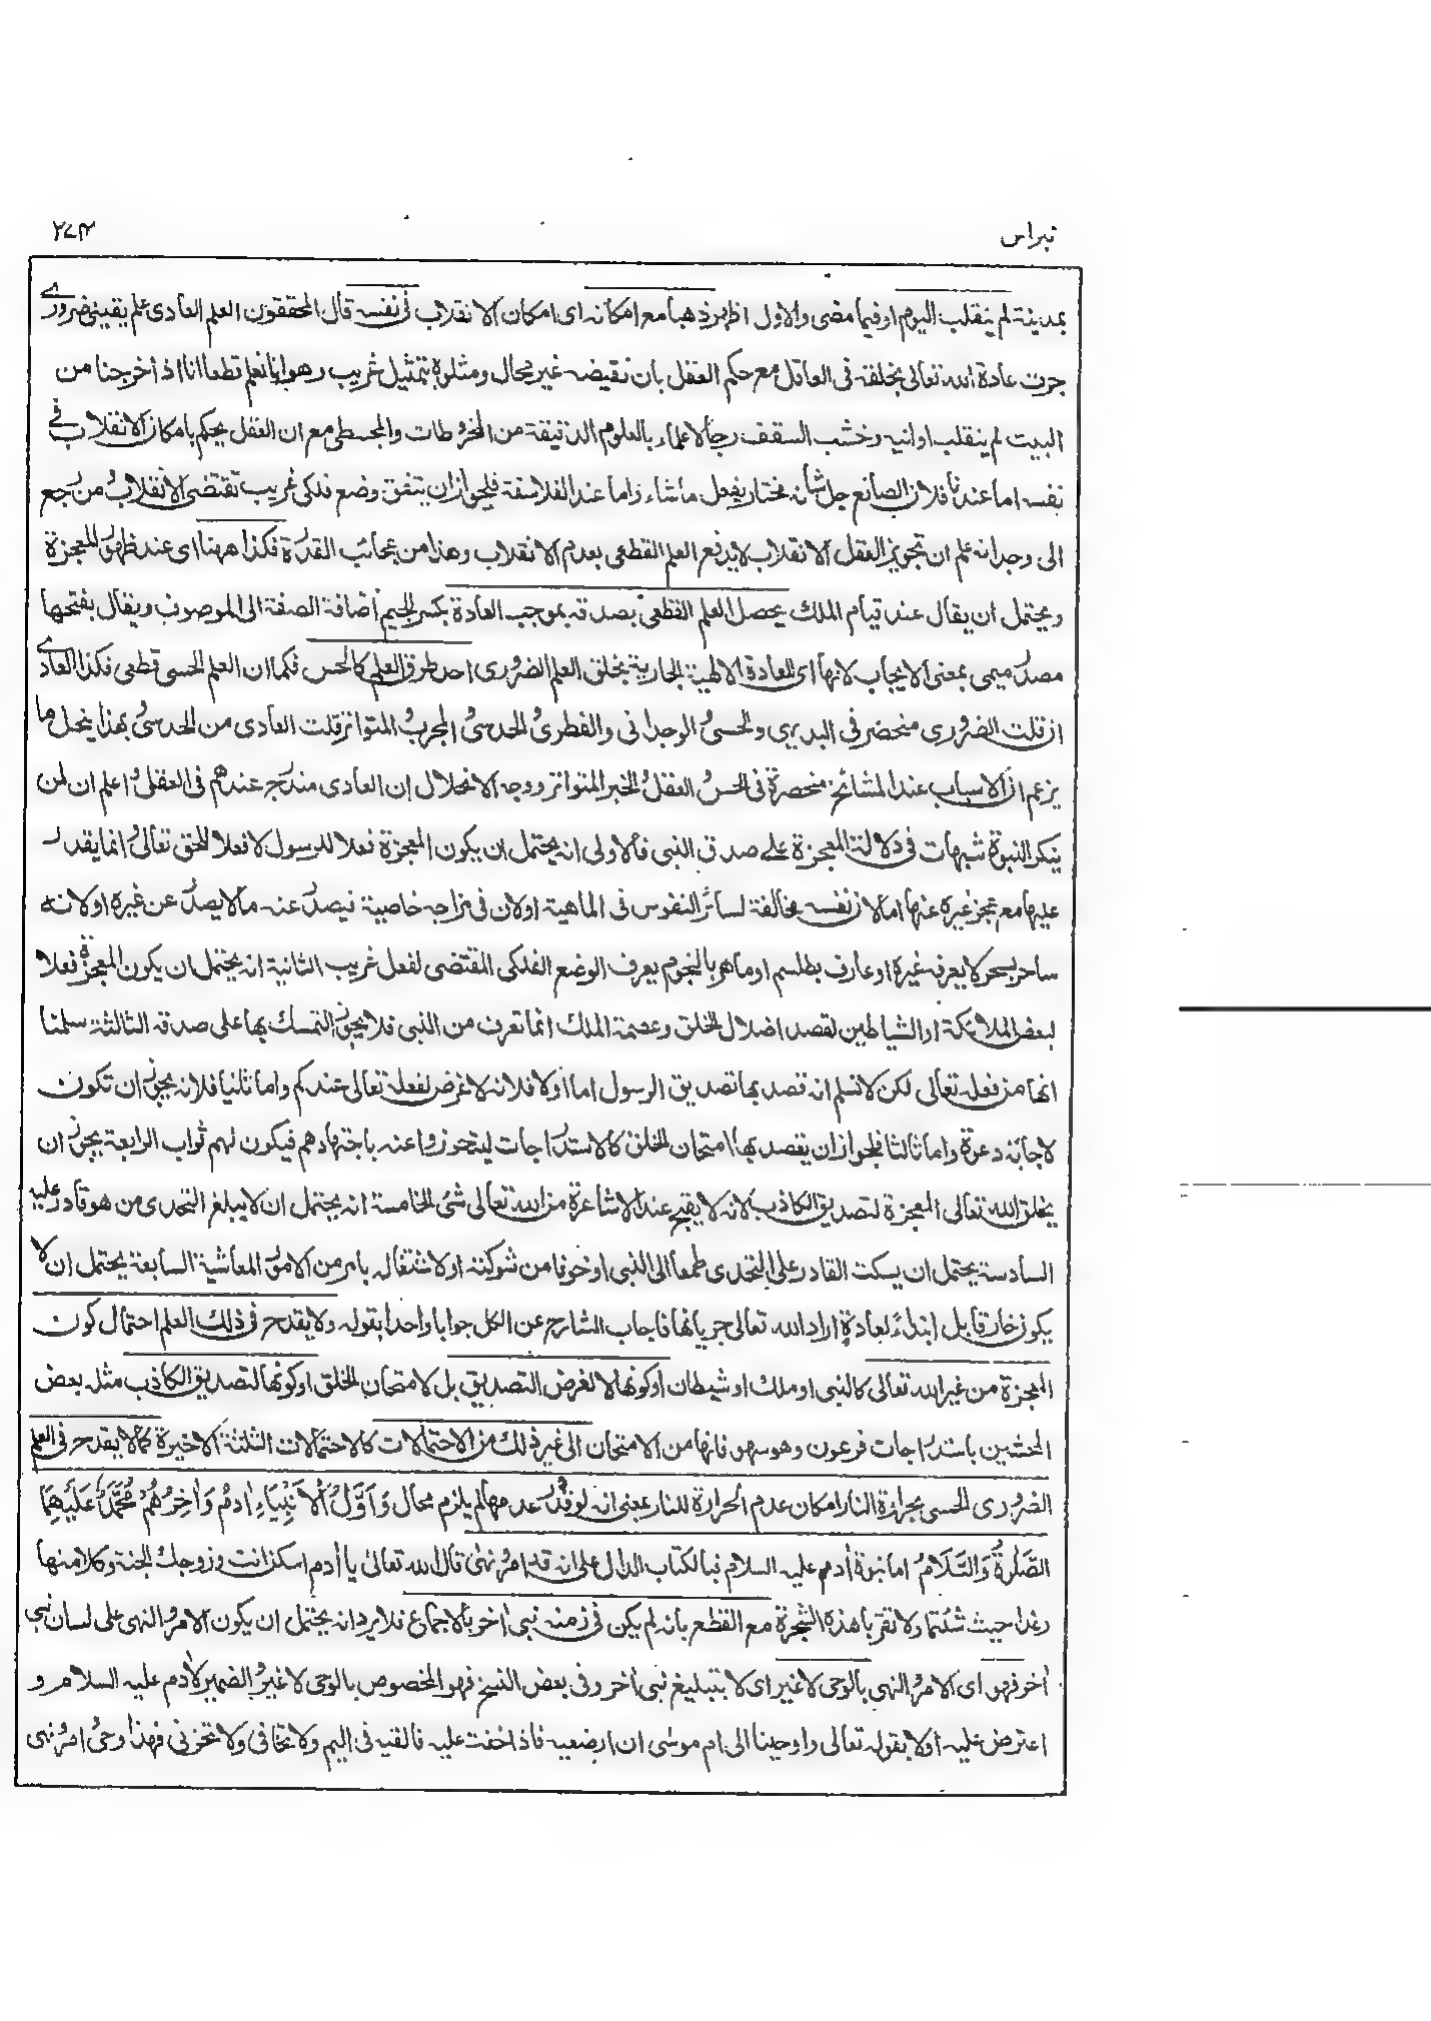 نبراس ٢٧٣
بمدينة لم ينقلب اليوم او فيما مضى والاول اظهر ذهبا مع امكانه اى امكان الانقلاب فى نفسه قال المحققون العلم العادى علم يقينى ضرورى
جرت عادة الله تعالى بخلقه فى العاقل مع حكم العقل بان نقيضه غير محال ومثلوه بتمثيل غريب وهو انا نعلم قطعا انا اذ اخرجنا من
البيت لم ينقلب اوانيه وخشب السقف رجالا علماء بالعلوم الدقيقة من المخروطات والمجسطى مع ان العقل يحكم بامكان الانقلاب فى
نفسه اما عندنا فلان الصانع جل شانه مختار يفعل ما شاء واما عند الفلاسفة فلجواز ان يتفق وضع فلكى غريب تقتضى الانقلاب من رجع
الى وجدانه علم ان تجويز العقل الانقلاب لا يدفع العلم القطعى بعدم الانقلاب وهذا من عجائب القدرة فكذا ههنا اى عند ظهور المعجزة
ويحتمل ان يقال عند قيام الملك يحصل العلم القطعى بصدقه بموجب العادة بكسر الجيم اضافة الصفة الى الموصوف ويقال بفتحها
مصدر ميمى بمعنى الايجاب لانها اى العادة الالهية الجارية بخلق العلم الضرورى احد طرق العلم كالحس فكما ان العلم الحسى قطعى فكذا العادى
ان قلت الضرورى منحصر فى البديهى والحسى الوجدانى والفطرى الحدسى المجرب المتواتر قلت العادى من الحدسى بهذا ينحل ما
يزعم ان الاسباب عند المشائخ منحصرة فى الحس العقل الخبر المتواتر ووجه الانحلال ان العادى مندرج عندهم فى العقلى اعلم ان لمن
ينكر النبوة شبهات فى دلالة المعجزة على صدق النبى فالاولى انه يحتمل ان يكون المعجزة فعلا للرسول لا فعلا للحق تعالى انما يقدر
عليها مع عجز غيره عنها اما لان نفسه مخالفة لسائر النفوس فى الماهية او لان فى مزاجه خاصية فيصدر عنه ما لا يصدر عن غيره او لانه
ساحر بسحر لا يعرفه غيره او عارف بطلسم او ماهر بالنجوم يعرف الوضع الفلكى المقتضى لفعل غريب الثانية انه يحتمل ان يكون المعجزة فعلا
لبعض الملائكة او الشياطين لقصد اضلال الخلق وعصمة الملك انما تعرف من النبى فلا يجوز التمسك بها على صدقه الثالثة سلمنا
انها من فعله تعالى لكن لا نسلم انه قصد بها تصديق الرسول اما اولا فلانه لا غرض لفعله تعالى عندكم واما ثانيا فلانه يجوز ان تكون
لاجابة دعوة واما ثالثا فلجواز ان يقصد بها امتحان الخلق كالاستدراجات ليتحوزوا عنه باجتهادهم فيكون لهم ثواب الرابعة يجوز ان
يخلق الله تعالى المعجزة لتصديق الكاذب لانه لا يقبح عند الاشاعرة من الله تعالى شئ الخامسة انه يحتمل ان لا يبلغ التحدى من هو قادر عليه
السادسة يحتمل ان يسكت القادر على التحدى طمعا الى النبى او خوفا من شوكته او لاشتغاله بامر من الامور المعاشية السابعة يحتمل ان لا
يكون خارقا بل ابتداء لعادة اراد الله تعالى جريانها فاجاب الشارح عن الكل جوابا واحدا بقوله ولا يقدح فى ذلك العلم احتمال كون
المعجزة من غير الله تعالى كالنبى او ملك او شيطان او كونها لا لغرض التصديق بل لامتحان الخلق او كونها لتصديق الكاذب مثله بعض
المحشين باستدراجات فرعون وهو سهو فانها من الامتحان الى غير ذلك من الاحتمالات كالاحتمالات الثلثة الاخيرة كما لا يقدح فى العلم
الضرورى الحسى بحرارة النار امكان عدم الحرارة للنار بمعنى انه لو قدر عدمها لم يلزم محال وَاَوَّلُ الْاَنْبِيَاءِ اٰدَمُ وَاٰخِرُهُمْ مُحَمَّدٌ عَلَيْهِمَا
الصَّلٰوةُ وَالسَّلَامُ اما نبوة اٰدم عليه السلام فبالكتاب الدال على انه قد امر ونهى قال الله تعالى يا اٰدم اسكن انت وزوجك الجنة وكلا منها
رغدا حيث شئتما ولا تقربا هذه الشجرة مع القطع بانه لم يكن فى زمنه نبى اٰخر بالاجماع فلا يرد انه يحتمل ان يكون الامر والنهى على لسان نبى
اٰخر فهو اى الامر والنهى بالوحى لا غير اى لا بتبليغ نبى اٰخر وفى بعض النسخ فهو المخصوص بالوحى لا غير والضمير لاٰدم عليه السلام و
اعترض عليه اولا بقوله تعالى واوحينا الى ام موسٰى ان ارضعيه فاذا خفت عليه فالقيه فى اليم ولا تخافى ولا تحزنى فهذا وحى امر ونهى